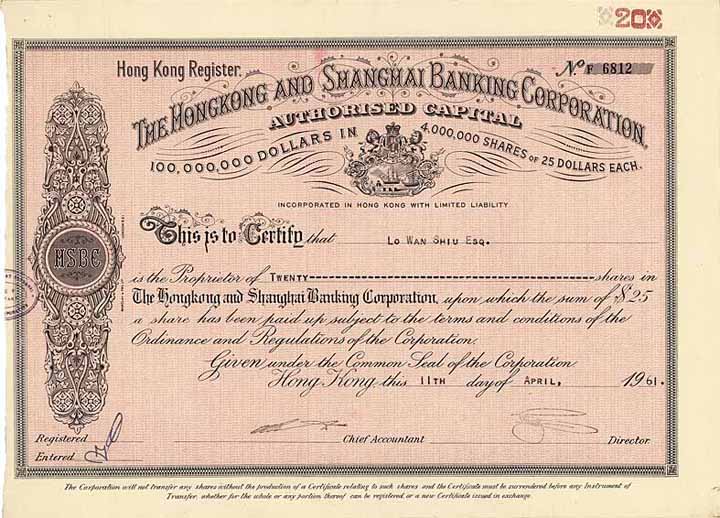 20
Hong Kong Register.
No. F 6812
THE HONGKONG AND SHANGHAI BANKING CORPORATION,
AUTHORISED CAPITAL
100,000,000 DOLLARS IN 4,000,000 SHARES OF 25 DOLLARS EACH.
INCORPORATED IN HONG KONG WITH LIMITED LIABILITY
This is to Certify that LO WAN SHIU ESQ.
HSBC
is the Proprietor of TWENTY shares in
The Hongkong and Shanghai Banking Corporation, upon which the sum of $25
a share has been paid up subject to the terms and conditions of the
Ordinance and Regulations of the Corporation.
Given under the Common Seal of the Corporation
Hong Kong this 11TH day of APRIL, 1961.
Registered
Entered
Chief Accountant
Director.
The Corporation will not transfer any shares without the production of a Certificate relating to such shares and the Certificate must be surrendered before any Instrument of
Transfer, whether for the whole or any portion thereof can be registered or a new Certificate issued in exchange